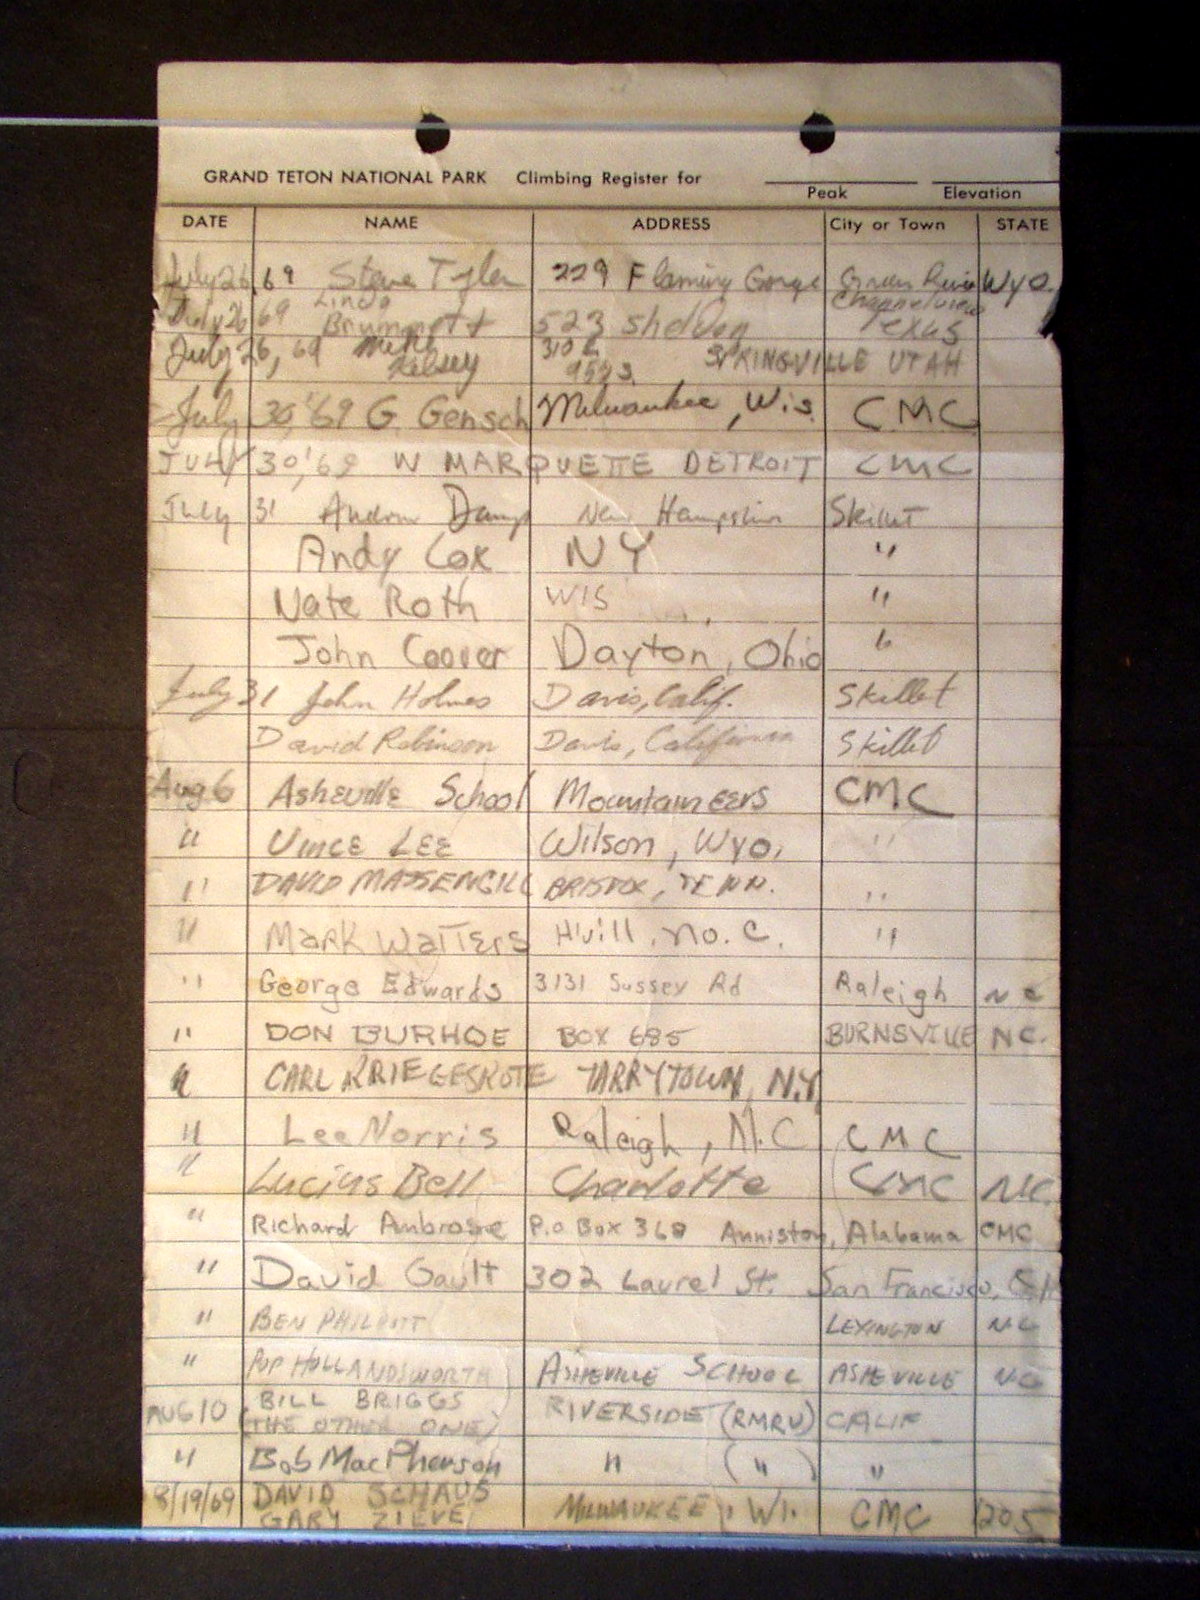 GRAND TETON NATIONAL PARK Climbing Register for
Peak Elevation
DATE NAME ADDRESS City or Town STATE
July 26, 69 Steve Tyler 229 Flaming Gorge Green River Wyo.
July 26 69 Linda Brummett 523 Sheldon Channelview Texas
July 26, 69 Mike Kelsey 310 E 950 S. SPRINGVILLE UTAH
July 30, '69 G. Gensch Milwaukee, Wis. CMC
JULY 30, '69 W MARQUETTE DETROIT CMC
July 31 Andrew New Hampshire Skillet
Andy Cox NY "
Nate Roth WIS "
John Coover Dayton, Ohio "
July 31 John Holmes Davis, Calif. Skillet
David Robinson Davis, California Skillet
Aug 6 Asheville School Mountaineers CMC
" Vince Lee Wilson, Wyo. "
" DAVID MASSENGILL BRISTOL, TENN. "
" Mark Watters H'vill, No. C. "
" George Edwards 3131 Sussex Rd Raleigh NC
" DON BURHOE BOX 685 BURNSVILLE NC.
" CARL KRIEGESKOTE TARRYTOWN, N.Y.
" Lee Norris Raleigh, N.C CMC
" Lucius Bell Charlotte CMC N.C.
" Richard Ambrose P.O Box 368 Anniston, Alabama CMC
" David Gault 302 Laurel St. San Francisco, Cal
" BEN PHILPOTT LEXINGTON NC
" POP HOLLANDSWORTH ASHEVILLE SCHOOL ASHEVILLE NC
AUG 10 BILL BRIGGS RIVERSIDE (RMRU) CALIF
(THE OTHER ONE)
" Bob MacPherson " (") "
8/19/69 DAVID SCHAUS MILWAUKEE, WI. CMC 1205
GARY ZIEVE